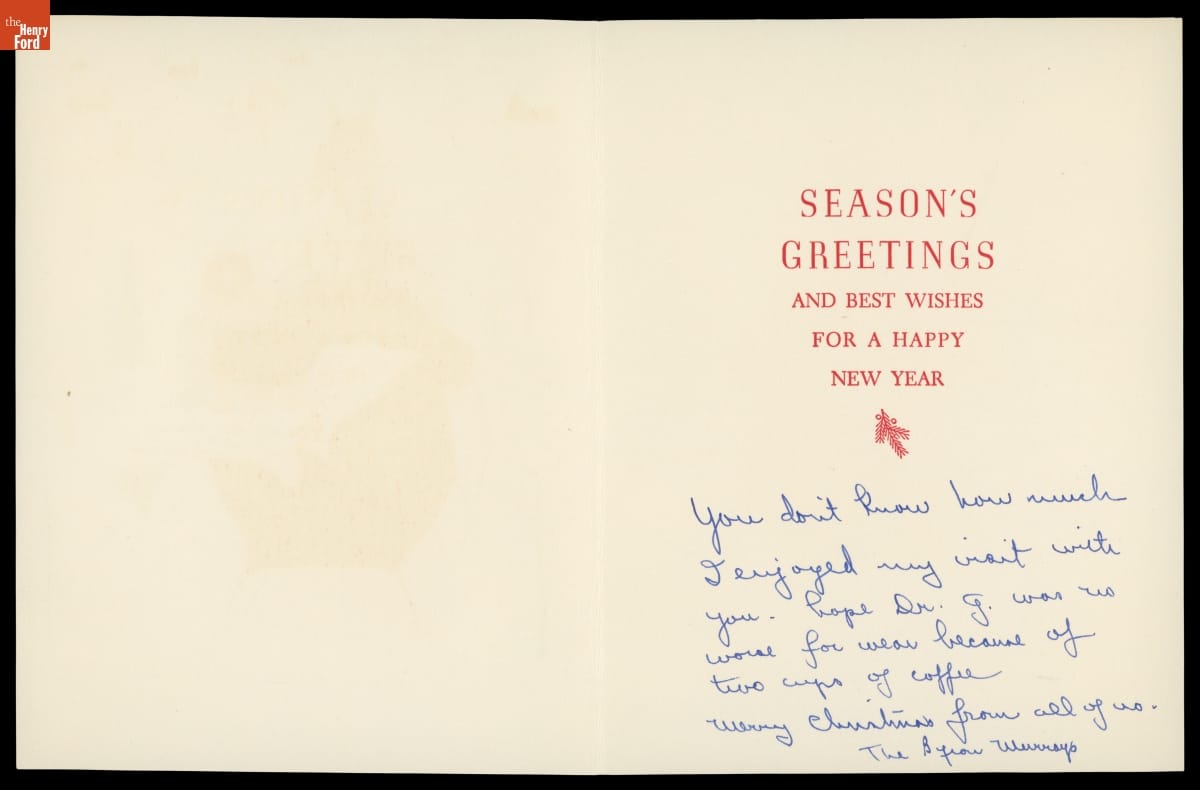 the
Henry
Ford
SEASON'S
GREETINGS
AND BEST WISHES
FOR A HAPPY
NEW YEAR
You don't know how much
I enjoyed my visit with
you - hope Dr. G. was no
worse for wear because of
two cups of coffee
Merry Christmas from all of us.
The Byron Murrays